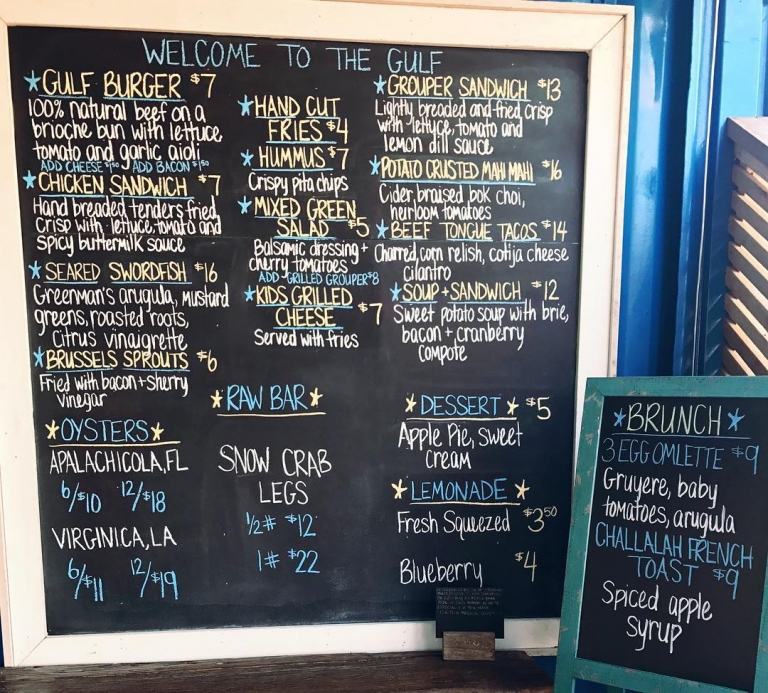 WELCOME TO THE GULF
GULF BURGER $7
100% natural beef on a
brioche bun with lettuce
tomato and garlic aioli
ADD CHEESE $1.50 ADD BACON $1.50
CHICKEN SANDWICH $7
Hand breaded tenders fried
crisp with lettuce, tomato and
spicy buttermilk sauce
SEARED SWORDFISH $16
Greenman's arugula, mustard
greens, roasted roots,
citrus vinaigrette
BRUSSELS SPROUTS $6
Fried with bacon + sherry
vinegar
OYSTERS
APALACHICOLA, FL
6/$10 12/$18
VIRGINICA, LA
6/$11 12/$19
HAND CUT
FRIES $4
HUMMUS $7
Crispy pita chips
MIXED GREEN
SALAD $5
Balsamic dressing +
cherry tomatoes
ADD GRILLED GROUPER $8
KIDS GRILLED
CHEESE $7
Served with fries
RAW BAR
SNOW CRAB
LEGS
1/2# $12
1# $22
GROUPER SANDWICH $13
Lightly breaded and fried crisp
with lettuce, tomato and
lemon dill sauce
POTATO CRUSTED MAHI MAHI $16
Cider braised bok choi,
heirloom tomatoes
BEEF TONGUE TACOS $14
Charred corn relish, cotija cheese
cilantro
SOUP + SANDWICH $12
Sweet potato soup with brie,
bacon + cranberry
compote
DESSERT $5
Apple Pie, sweet
cream
LEMONADE
Fresh Squeezed $3.50
Blueberry $4
BRUNCH
3 EGG OMLETTE $9
Gruyere, baby
tomatoes, arugula
CHALLALAH FRENCH
TOAST $9
Spiced apple
syrup